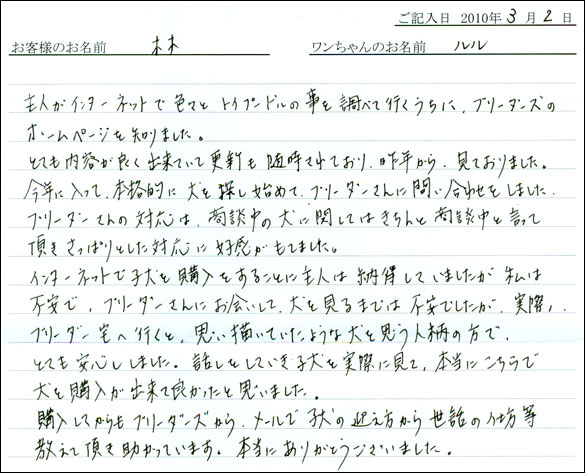 ご記入日 2010年 3月 2日
お客様のお名前 林 ワンちゃんのお名前 ルル
主人がインターネットで色々と トイプードルの事を調べて行くうちに、ブリーダーズの
ホームページを知りました。
とても内容が良く出来ていて更新も随時されており、昨年から、見ておりました。
今年に入って、本格的に犬を探し始めて、ブリーダーさんに問い合わせをしました。
ブリーダーさんの対応は、商談中の犬に関してはきちんと商談中と言って
頂きさっぱりとした対応に好感がもてました。
インターネットで子犬を購入をすることに主人は納得していましたが私は
不安で、ブリーダーさんにお会いして、犬を見るまでは不安でしたが、実際、
ブリーダー宅へ行くと、思い描いていたような犬を思う人柄の方で、
とても安心しました。話しをしていき子犬を実際に見て、本当にこちらで
犬を購入が出来て良かったと思いました。
購入してからもブリーダーズから、メールで子犬の迎え方から世話の仕方等
教えて頂き助かっています。本当にありがとうございました。